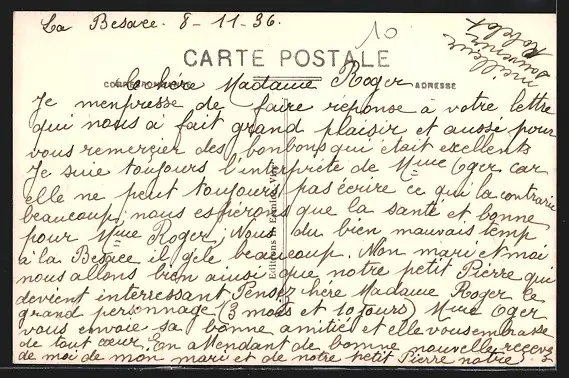 La Besace. 8-11-36.
10
meilleur
souvenir
CARTE POSTALE
CORRESPONDANCE ADRESSE
hère Madame Roger
Je menpresse de faire reponse à votre lettre
qui nous a fait grand plaisir et aussé pour
vous remercier des bonbons qui était exellents
Je suie toujours l'interprète de Mme Oger car
elle ne peut toujours pas écrire ce qui la contrarie
beaucoup, nous espérons que la santé et bonne
pour Mme Roger, Nous du bien mauvais temp
à la Besace il gèle beaucoup. Mon mari et moi
nous allons bien ainsi que notre petit Pierre qui
devient interressant Pensez hère Madame Roger le
grand personnage (3 mois et 10 jours) Mme Oger
vous envoie sa bonne amitié et elle vous embrasse
de tout cœur. En attendant de bonne nouvelle recevez
de moi de mon mari et de notre petit Pierre notre